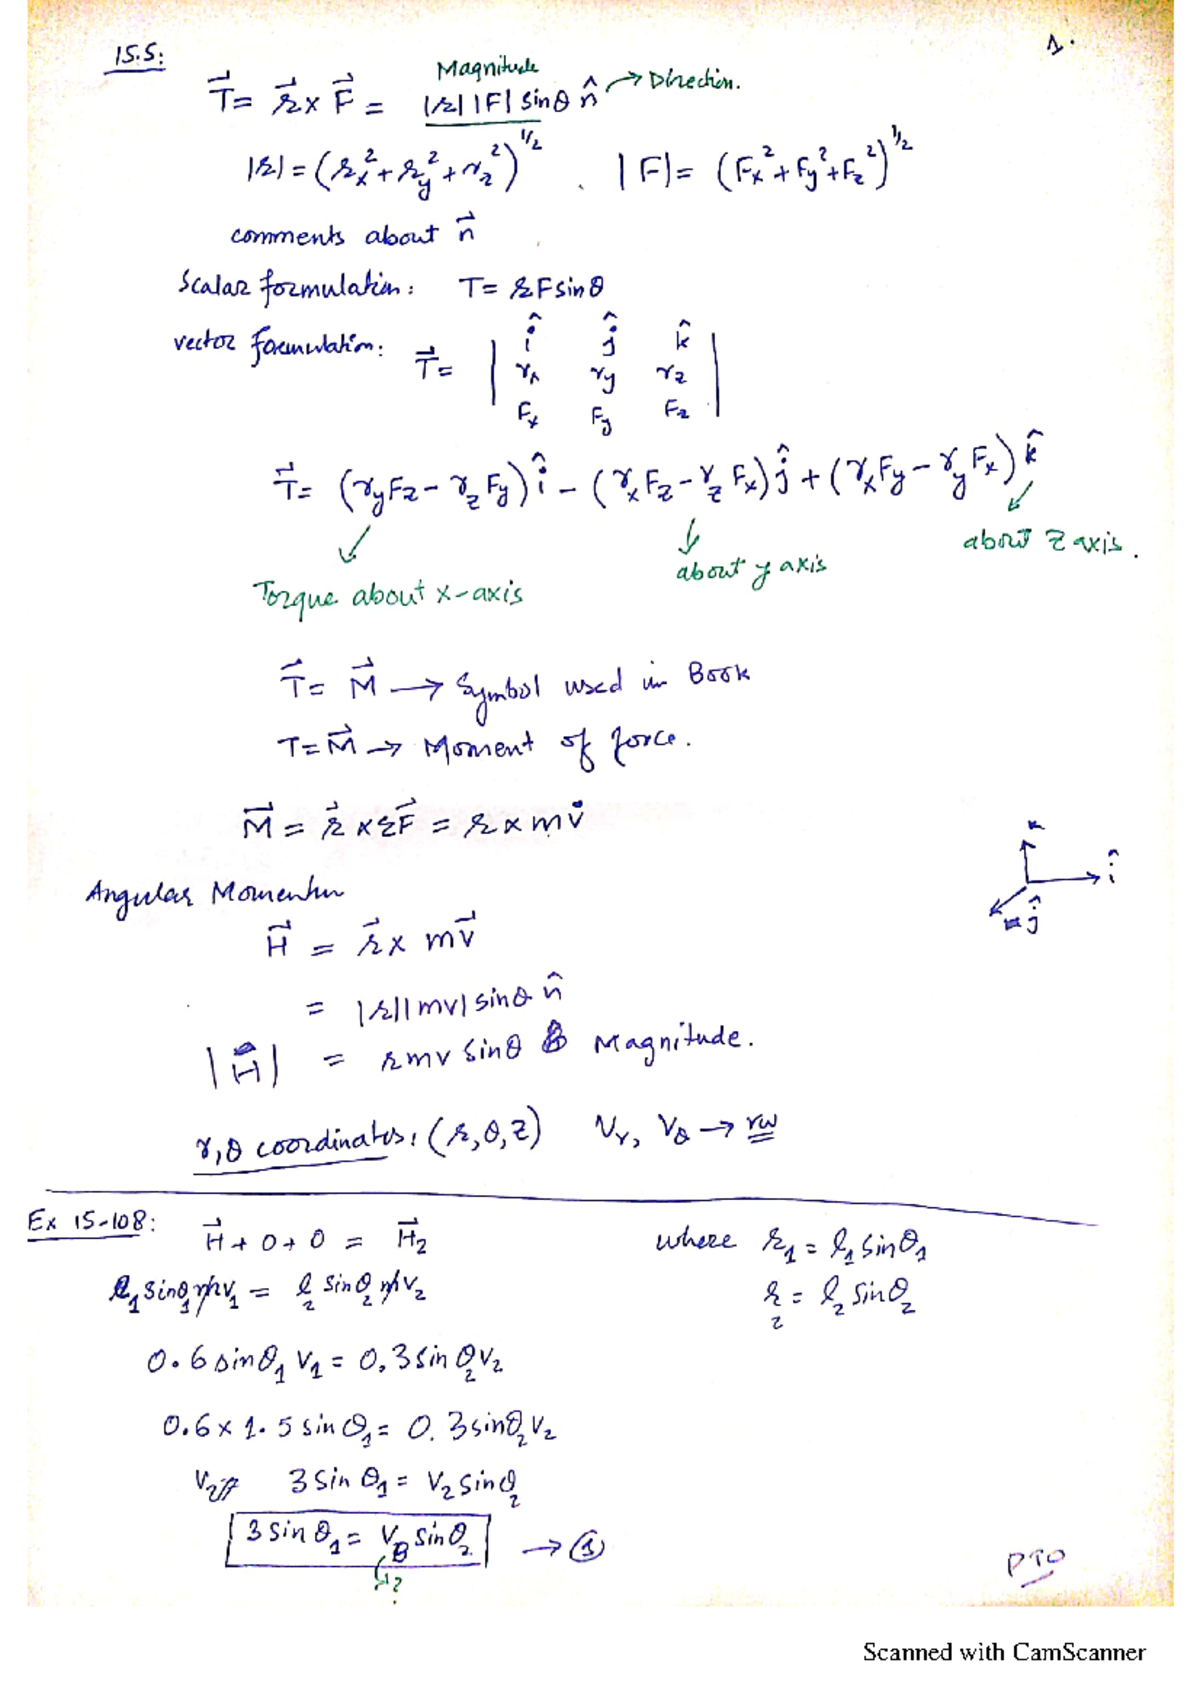 15.5:
1.
Magnitude
T⃗ = r⃗ × F⃗ = |r||F| sinθ n̂ → Direction.
|r| = (rx² + ry² + rz²)^1/2 . |F| = (Fx² + Fy² + Fz²)^1/2
comments about n⃗
Scalar formulation: T = rFsinθ
vector formulation: T⃗ = | î ĵ k̂
rx ry rz
Fx Fy Fz |
T⃗ = (ryFz - rzFy) î - (rxFz - rzFx) ĵ + (rxFy - ryFx) k̂
Torque about x-axis
about y axis
about z axis.
T⃗ = M⃗ → Symbol used in Book
T = M⃗ → Moment of force.
M⃗ = r⃗ × ΣF⃗ = r × mv̇
k
î
ĵ
Angular Momentum
H⃗ = r⃗ × mv⃗
= |r||mv| sinθ n̂
|H⃗| = rmv sinθ Magnitude.
r,θ coordinates: (r,θ,z) Vr, Vθ → rw
Ex 15-108: H⃗ + 0 + 0 = H⃗2 where r1 = l1 sinθ1
l1 sinθ1 mv1 = l2 sinθ2 mv2 r2 = l2 sinθ2
0.6 sinθ1 v1 = 0.3 sinθ2 v2
0.6 × 1.5 sinθ1 = 0.3 sinθ2 v2
3 sinθ1 = v2 sinθ2
3 sinθ1 = VB sinθ2 → ①
?
PTO
Scanned with CamScanner